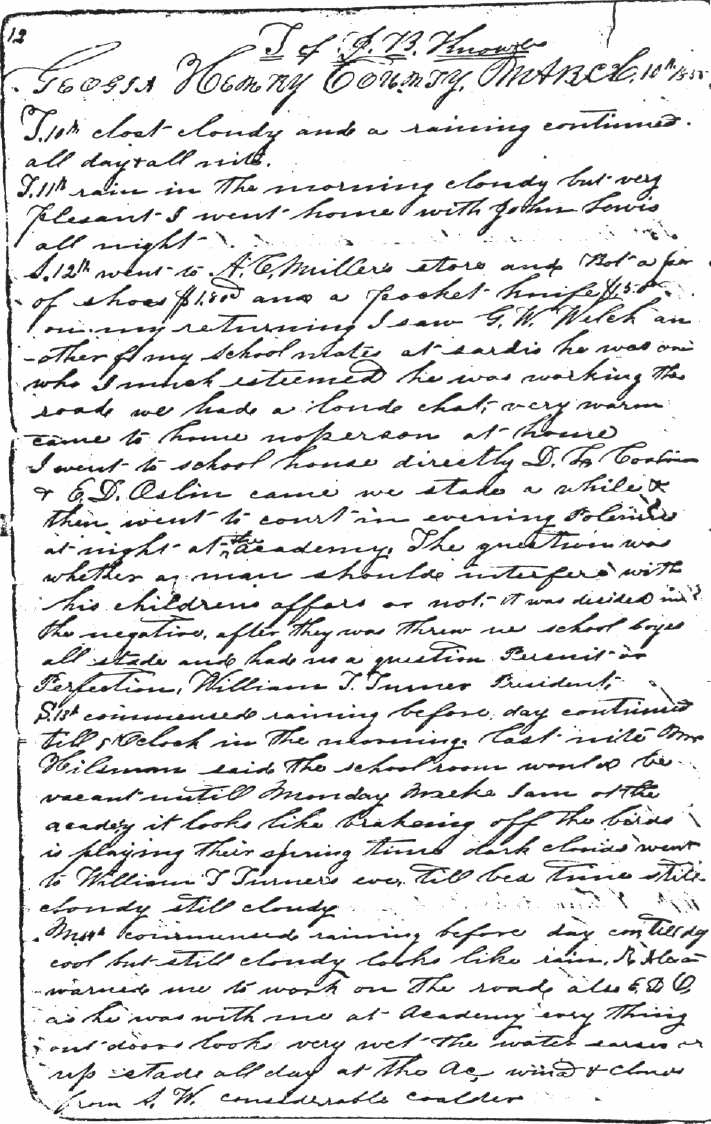 12
J of J. B. Knowls
Geogia Henry County, March. 10th 185
T. 10th clost cloudy and a raining continued.
all day & all nite.
T. 11th rain in the morning cloudy but very
plesant I went home with John Lewis
all night
S. 12th went to A. C. Millers store and Bot a par
of shoes $1.80 and a pocket knife $1.50
on my returning I saw G. W. Welch an
other of my school mates at sardis he was one
who I much esteemed he was working the
road we had a londe chat, very warm
came to home noperson at home
I went to school house directly D. L.
& E. D. Oslin came we stade a while &
then went to court in evening
at night at the academy. The question was
whether a man should interfere with
his childrens affars or not, it was decided in
the negative, after they was threw we school boyes
all stade and had us a question Persuit or
Perfection, William T. Turner President,
S. 13th commensed raining before day continued
till 9 Oclock in the morning. last nite Mr
Hilsman said the school room would be
vacant untill Monday weeke I am at the
acadey it looks like brakeing off the birds
is playing their spring time dark clouds went
to William T Turners eve, till bed time still
cloudy still cloudy
M 14th commensed raining before day con, till dy
cool but still cloudy looks like rain,
warned me to work on the road also E. D. O,
as he was with me at Academy evry thing
out doors looks very wet the water
up stade all day at the Ac, wind & clouds
from S. W. considerable coalder